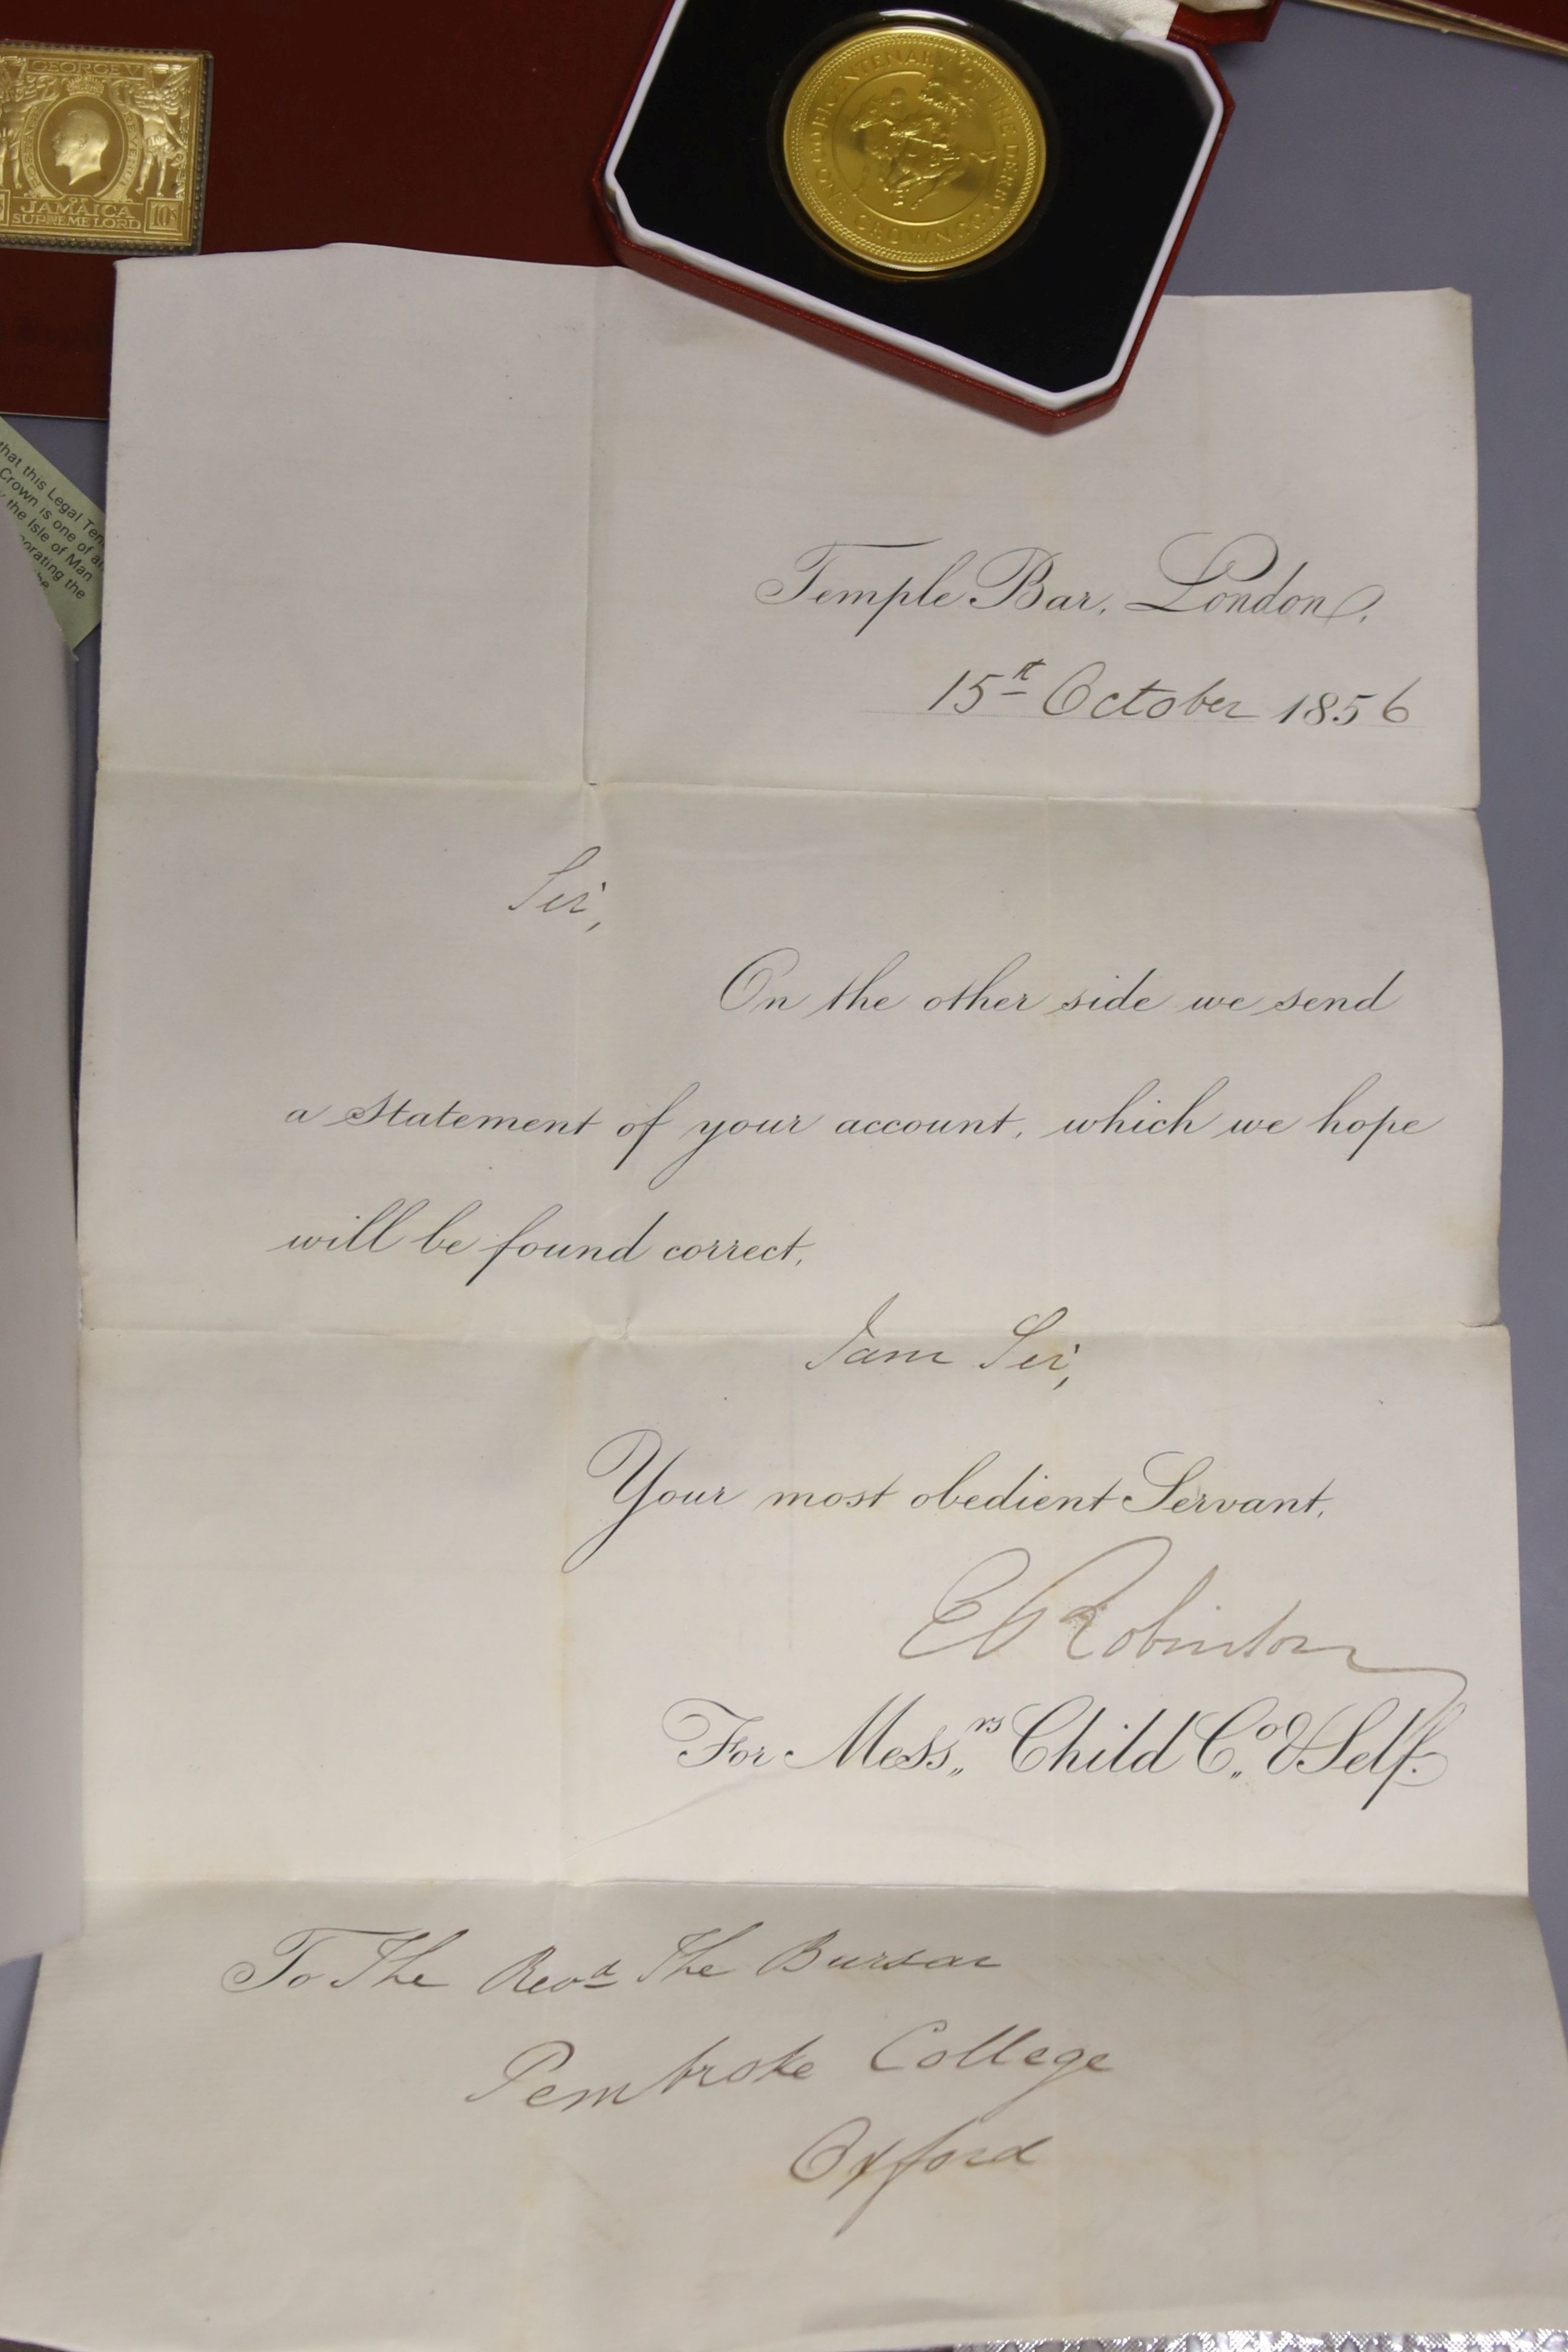 GEORGE V
JAMAICA
SUPREME LORD
10s
BICENTENARY OF THE DERBY
ONE CROWN
that this Legal Ten
Crown is one of a
the Isle of Man
orating the
he
Temple Bar, London,
15th October 1856
Sir,
On the other side we send
a statement of your account, which we hope
will be found correct.
I am Sir,
Your most obedient Servant,
Robinson
For Messrs Child Co & Self.
To The Revd The Bursar
Pembroke College
Oxford